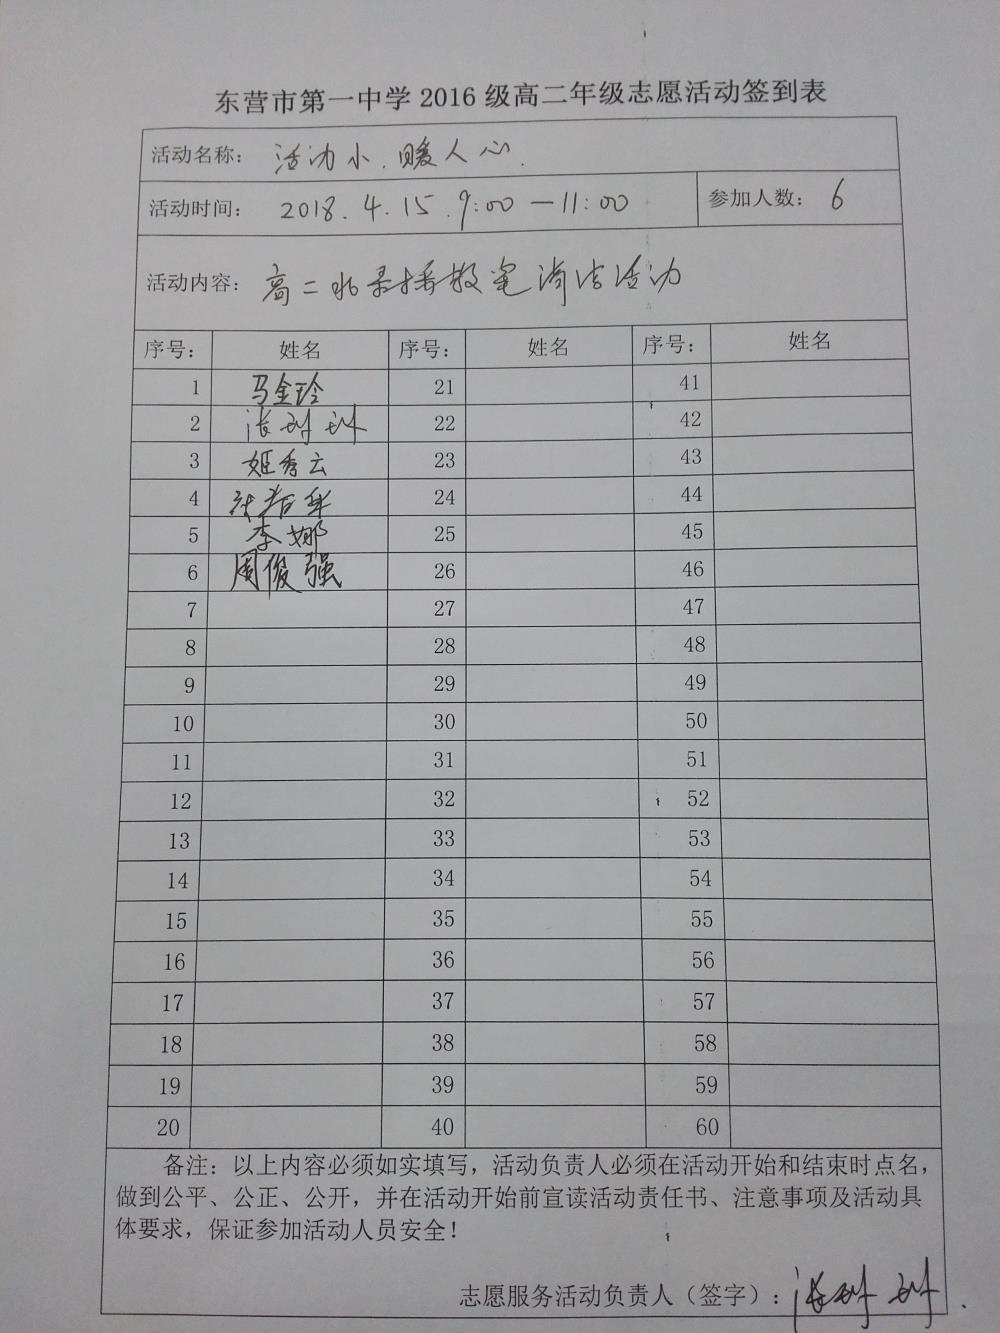 东营市第一中学2016级高二年级志愿活动签到表
活动名称： 活动小.暖人心.
活动时间： 2018.4.15.9:00—11:00 参加人数： 6
活动内容： 高二北录播教室清洁活动
序号： 姓名 序号： 姓名 序号： 姓名
1 马金玲 21 41
2 张 22 42
3 姬秀云 23 43
4 24 44
5 李娜 25 45
6 周俊强 26 46
7 27 47
8 28 48
9 29 49
10 30 50
11 31 51
12 32 52
13 33 53
14 34 54
15 35 55
16 36 56
17 37 57
18 38 58
19 39 59
20 40 60
备注：以上内容必须如实填写，活动负责人必须在活动开始和结束时点名，
做到公平、公正、公开，并在活动开始前宣读活动责任书、注意事项及活动具
体要求，保证参加活动人员安全！
志愿服务活动负责人（签字）： 张